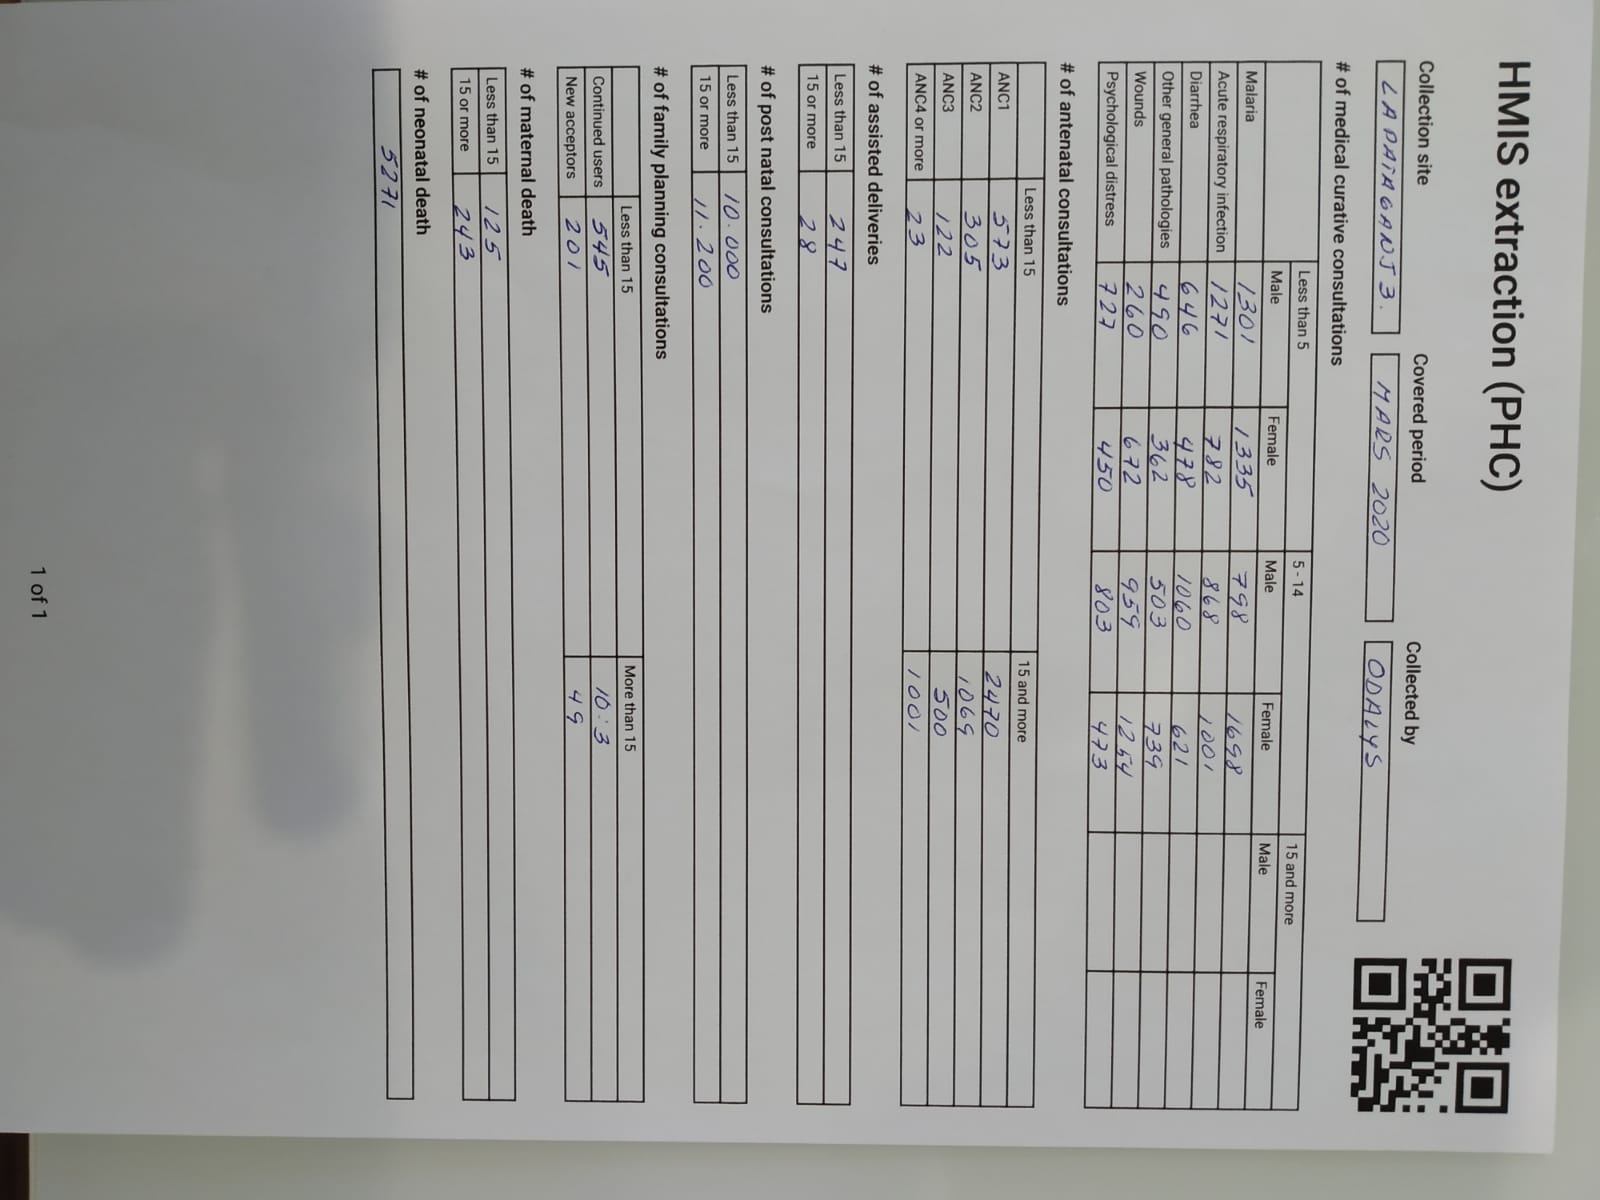 HMIS extraction (PHC)
Collection site Covered period Collected by
MARS 2020 ODALYS
# of medical curative consultations
Less than 5 5 - 14 15 and more
Male Female Male Female Male Female
Malaria 1301 1335 798 1698
Acute respiratory infection 1271 782 868 1001
Diarrhea 646 478 1060 621
Other general pathologies 490 362 503 739
Wounds 260 672 959 1254
Psychological distress 727 450 803 473
# of antenatal consultations
Less than 15 15 and more
ANC1 573 2470
ANC2 305 1069
ANC3 122 500
ANC4 or more 23 1001
# of assisted deliveries
Less than 15 247
15 or more 28
# of post natal consultations
Less than 15 10.000
15 or more 11.200
# of family planning consultations
Less than 15 More than 15
Continued users 545
New acceptors 201 49
# of maternal death
Less than 15 125
15 or more 243
# of neonatal death
5271
1 of 1